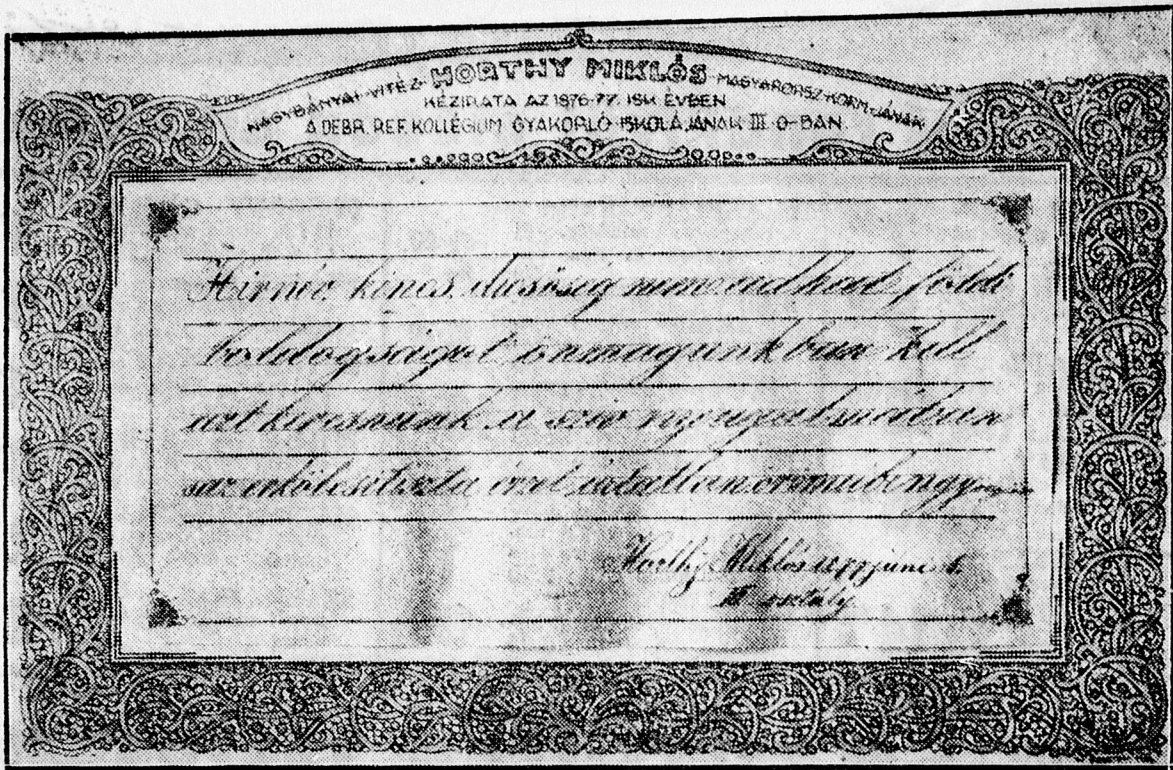 NAGYBÁNYAI VITÉZ HORTHY MIKLÓS MAGYARORSZ. KORM-JÁNAK
KÉZIRATA AZ 1876-77. ISK. ÉVBEN
A DEBR. REF. KOLLÉGIUM GYAKORLÓ ISKOLÁJÁNAK III. O-BAN.
Hirnév kincs dicsőség nem adhat földi
boldogságot önmagunkban kell
azt keresnünk a sziv nyugalmában
s az erkölcsi tiszta érzet örömeiben
Horthy Miklós junius 1.
III osztály